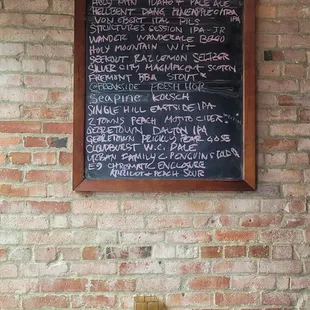 HOLY MTN IDAHO 7 PALE ALE
HELLBENT DANG IPA
VON EBERT ITAL PILS
STRUCTURES SESSION IPA-JR
WANDER WANDERALE BGGO
HOLY MOUNTAIN WIT
SEEKOUT RAZ LEMON SELTZER
SILVER CITY MAGNIFICENT
FREMONT BBA STOUT
FRESH HOP
Seapine KOLSCH
SINGLE HILL EASTSIDE IPA
2 TOWNS PEACH MOJITO CIDER
GEORGETOWN DAYTON IPA
GEORGETOWN PRICKLY PEAR GOSE
CLOUDBURST W.C. PALE
URBAN FAMILY C. PENGUINS
E9 CHROMATIC ENCLOSURE
APRICOT + PEACH SOUR